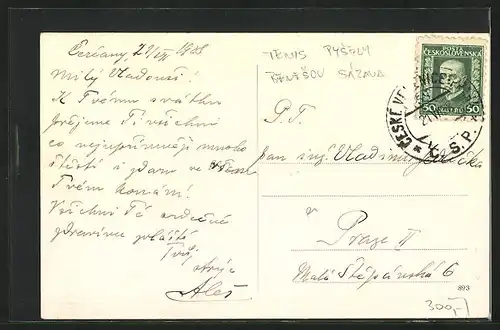 Čerčany, 21/IV 1928
Milý Vladouši!
K Tvému svátku
přejeme Ti všichni
co nejupřímněji mnoho
štěstí a zdaru ve
Tvém konání!
Všichni Tě srdečně
zdravíme zvláště
Tvůj
strýc
Aleš
TENIS PYŠELY
BENEŠOV SÁZAVA
POŠTA
ČESKOSLOVENSKÁ
50 50
ČESKÉ VEL
S.P.
P.T.
pan ing. Vladimír
v
Praze II
Malá Štěpánská 6
893
300,-